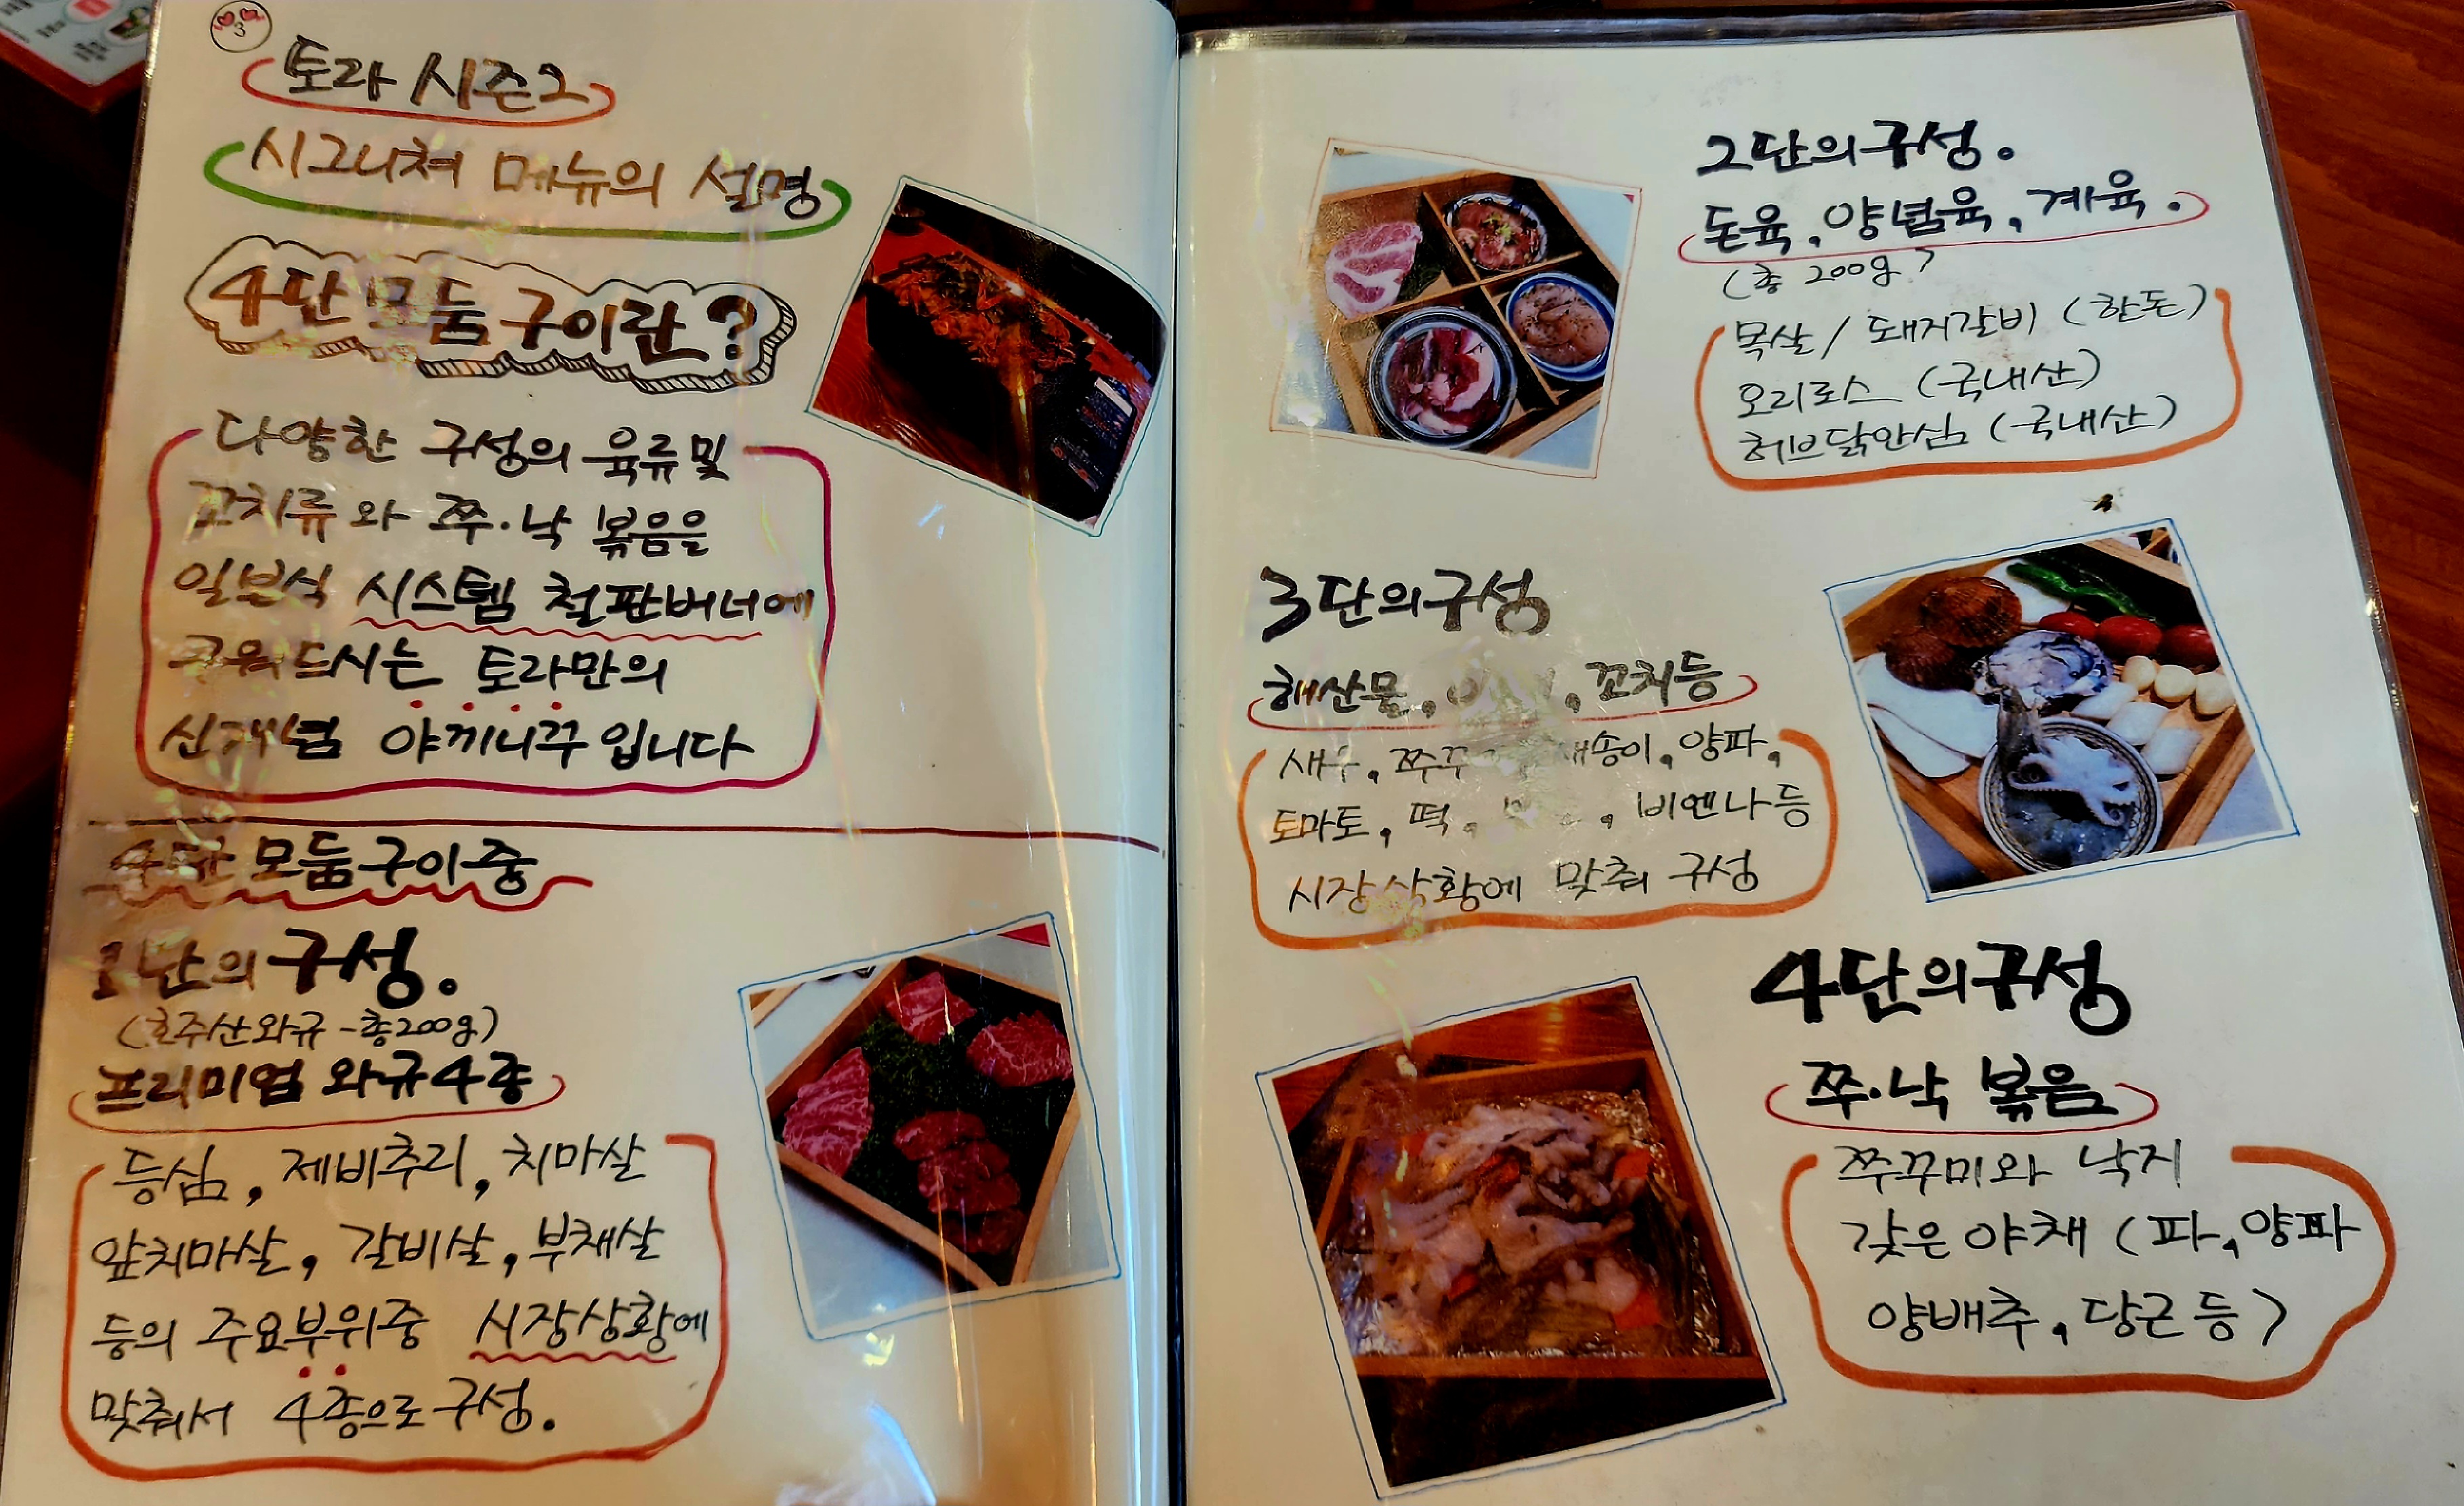 토라 시즌2
시그니쳐 메뉴의 설명
4단 모둠 구이란?
다양한 구성의 육류 및
꼬치류와 쭈.낙 볶음을
일본식 시스템 철판버너에
구워드시는 토라만의
신개념 야끼니꾸 입니다
4단 모둠구이중
1단의 구성.
(호주산와규-총200g)
프리미엄 와규4종
등심, 제비추리, 치마살
앞치마살, 갈비살, 부채살
등의 주요부위중 시장상황에
맞춰서 4종으로 구성.
2단의구성.
돈육, 양념육, 계육.
(총 200g)
목살/돼지갈비 (한돈)
오리로스 (국내산)
허브닭안심 (국내산)
3단의구성
해산물, , 꼬치등
새우, 새송이, 양파,
토마토, 떡, , 비엔나등
시장상황에 맞춰 구성
4단의구성
쭈.낙 볶음
쭈꾸미와 낙지
갖은 야채 (파, 양파
양배추, 당근 등)